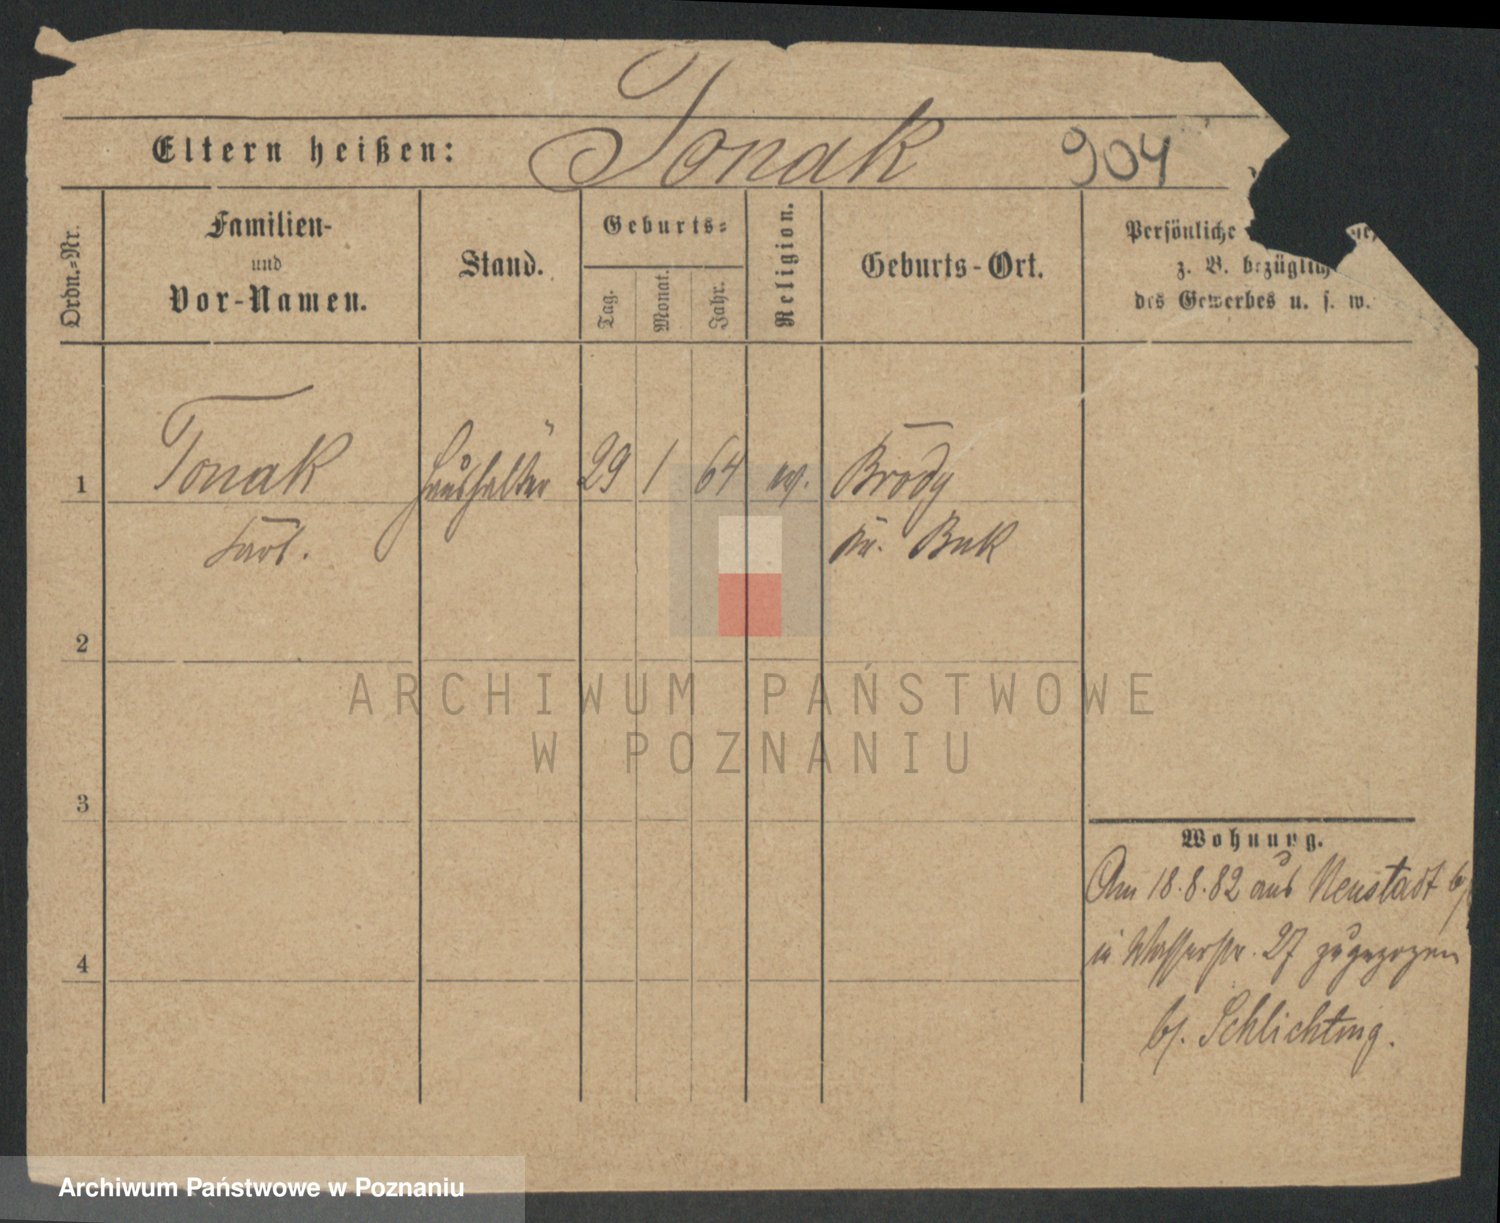 Tonak
Eltern heißen: 904
Ordn.=Nr.
Familien-
und
Vor-Namen.
Stand.
Geburts=
Tag.
Monat.
Jahr.
Religion.
Geburts-Ort.
Persönliche
z. B. bezüglich
des Gewerbes u. s. w.
1 Tonak Haushälter 29 1 64 ev. Brody
Karl. Kr. Buk
2
3
4
Wohnung.
Am 18.8.82 aus Neustadt b/
in Wasserstr. 27 zugezogen
b/. Schlichting.
ARCHIWUM PAŃSTWOWE
W POZNANIU
Archiwum Państwowe w Poznaniu